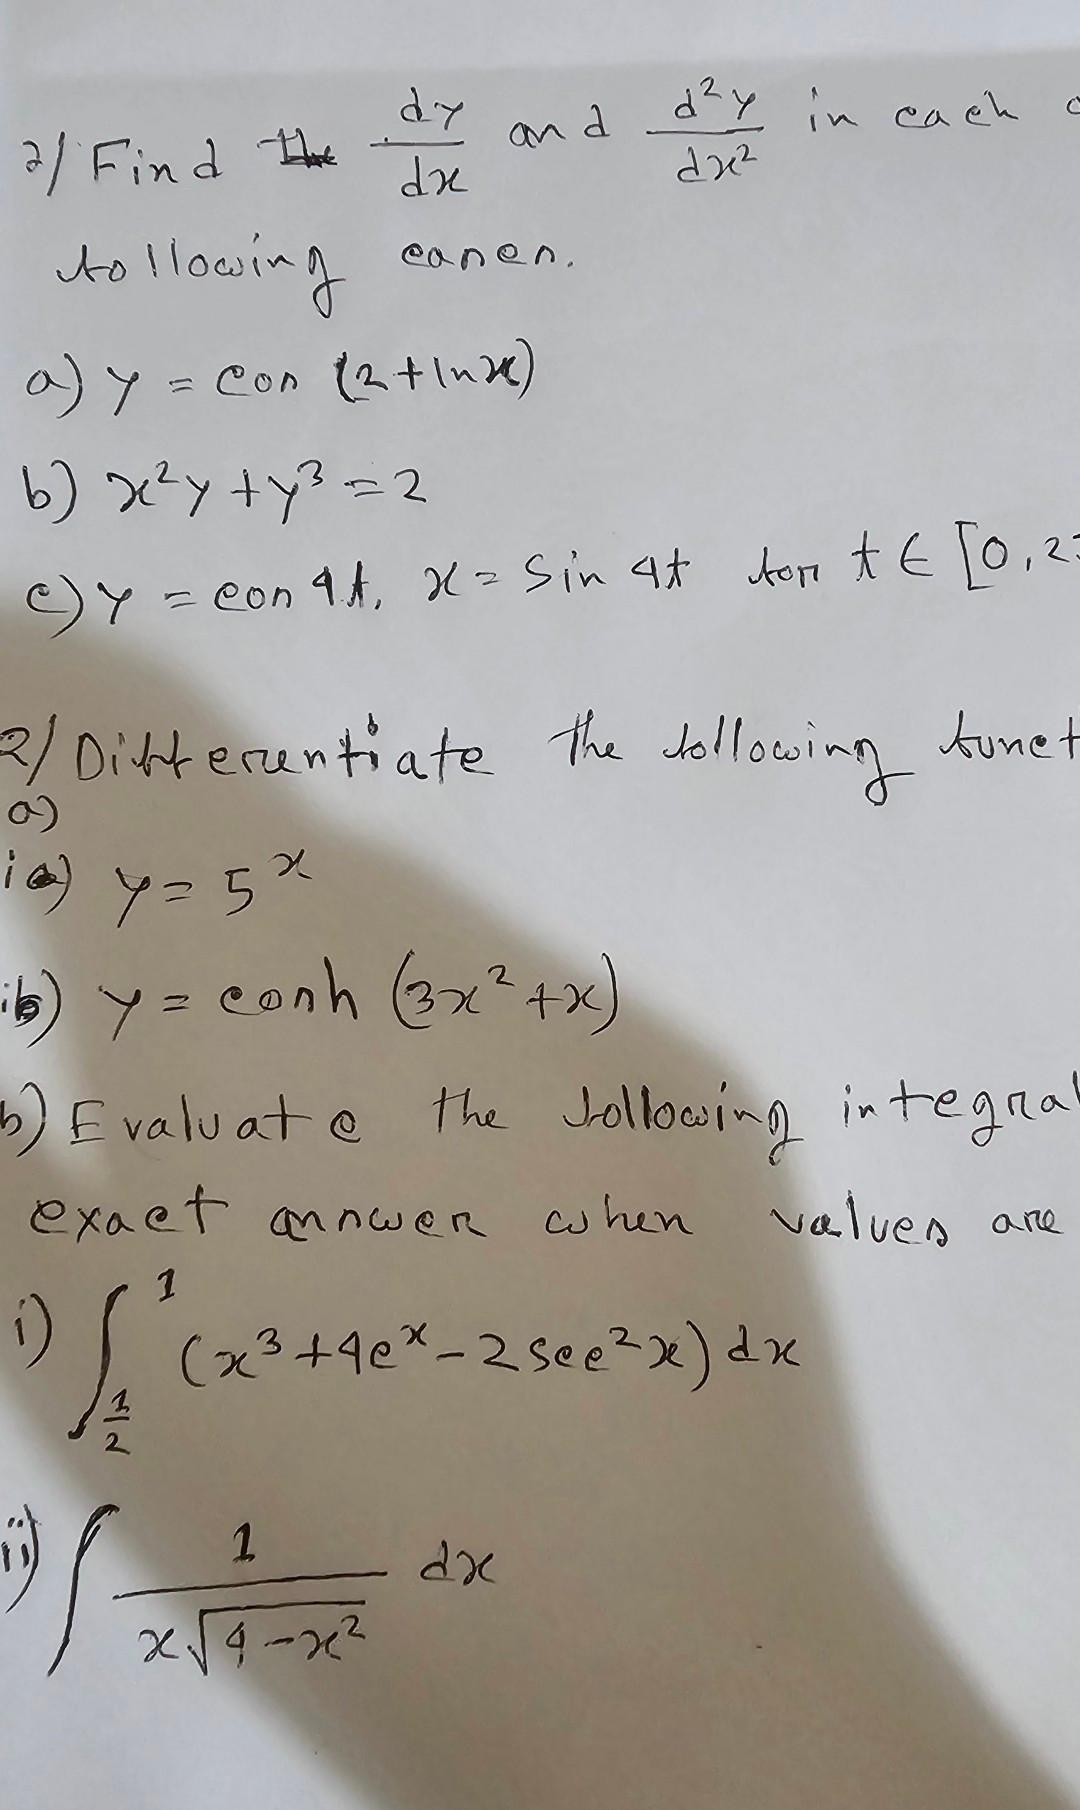 2/ Find dy/dx and d²y/dx² in each
following cases.
a) y = cos (2+lnx)
b) x²y + y³ = 2
c) y = cos 4t, x = sin 4t for t ∈ [0, 2
2/ Differentiate the following funct
a)
i) y = 5^x
ii) y = cosh (3x² + x)
b) Evaluate the following integral
exact answer when values are
i) ∫_{1/2}^{1} (x³ + 4e^x - 2 sec²x) dx
ii) ∫ 1/(x√(4 - x²)) dx